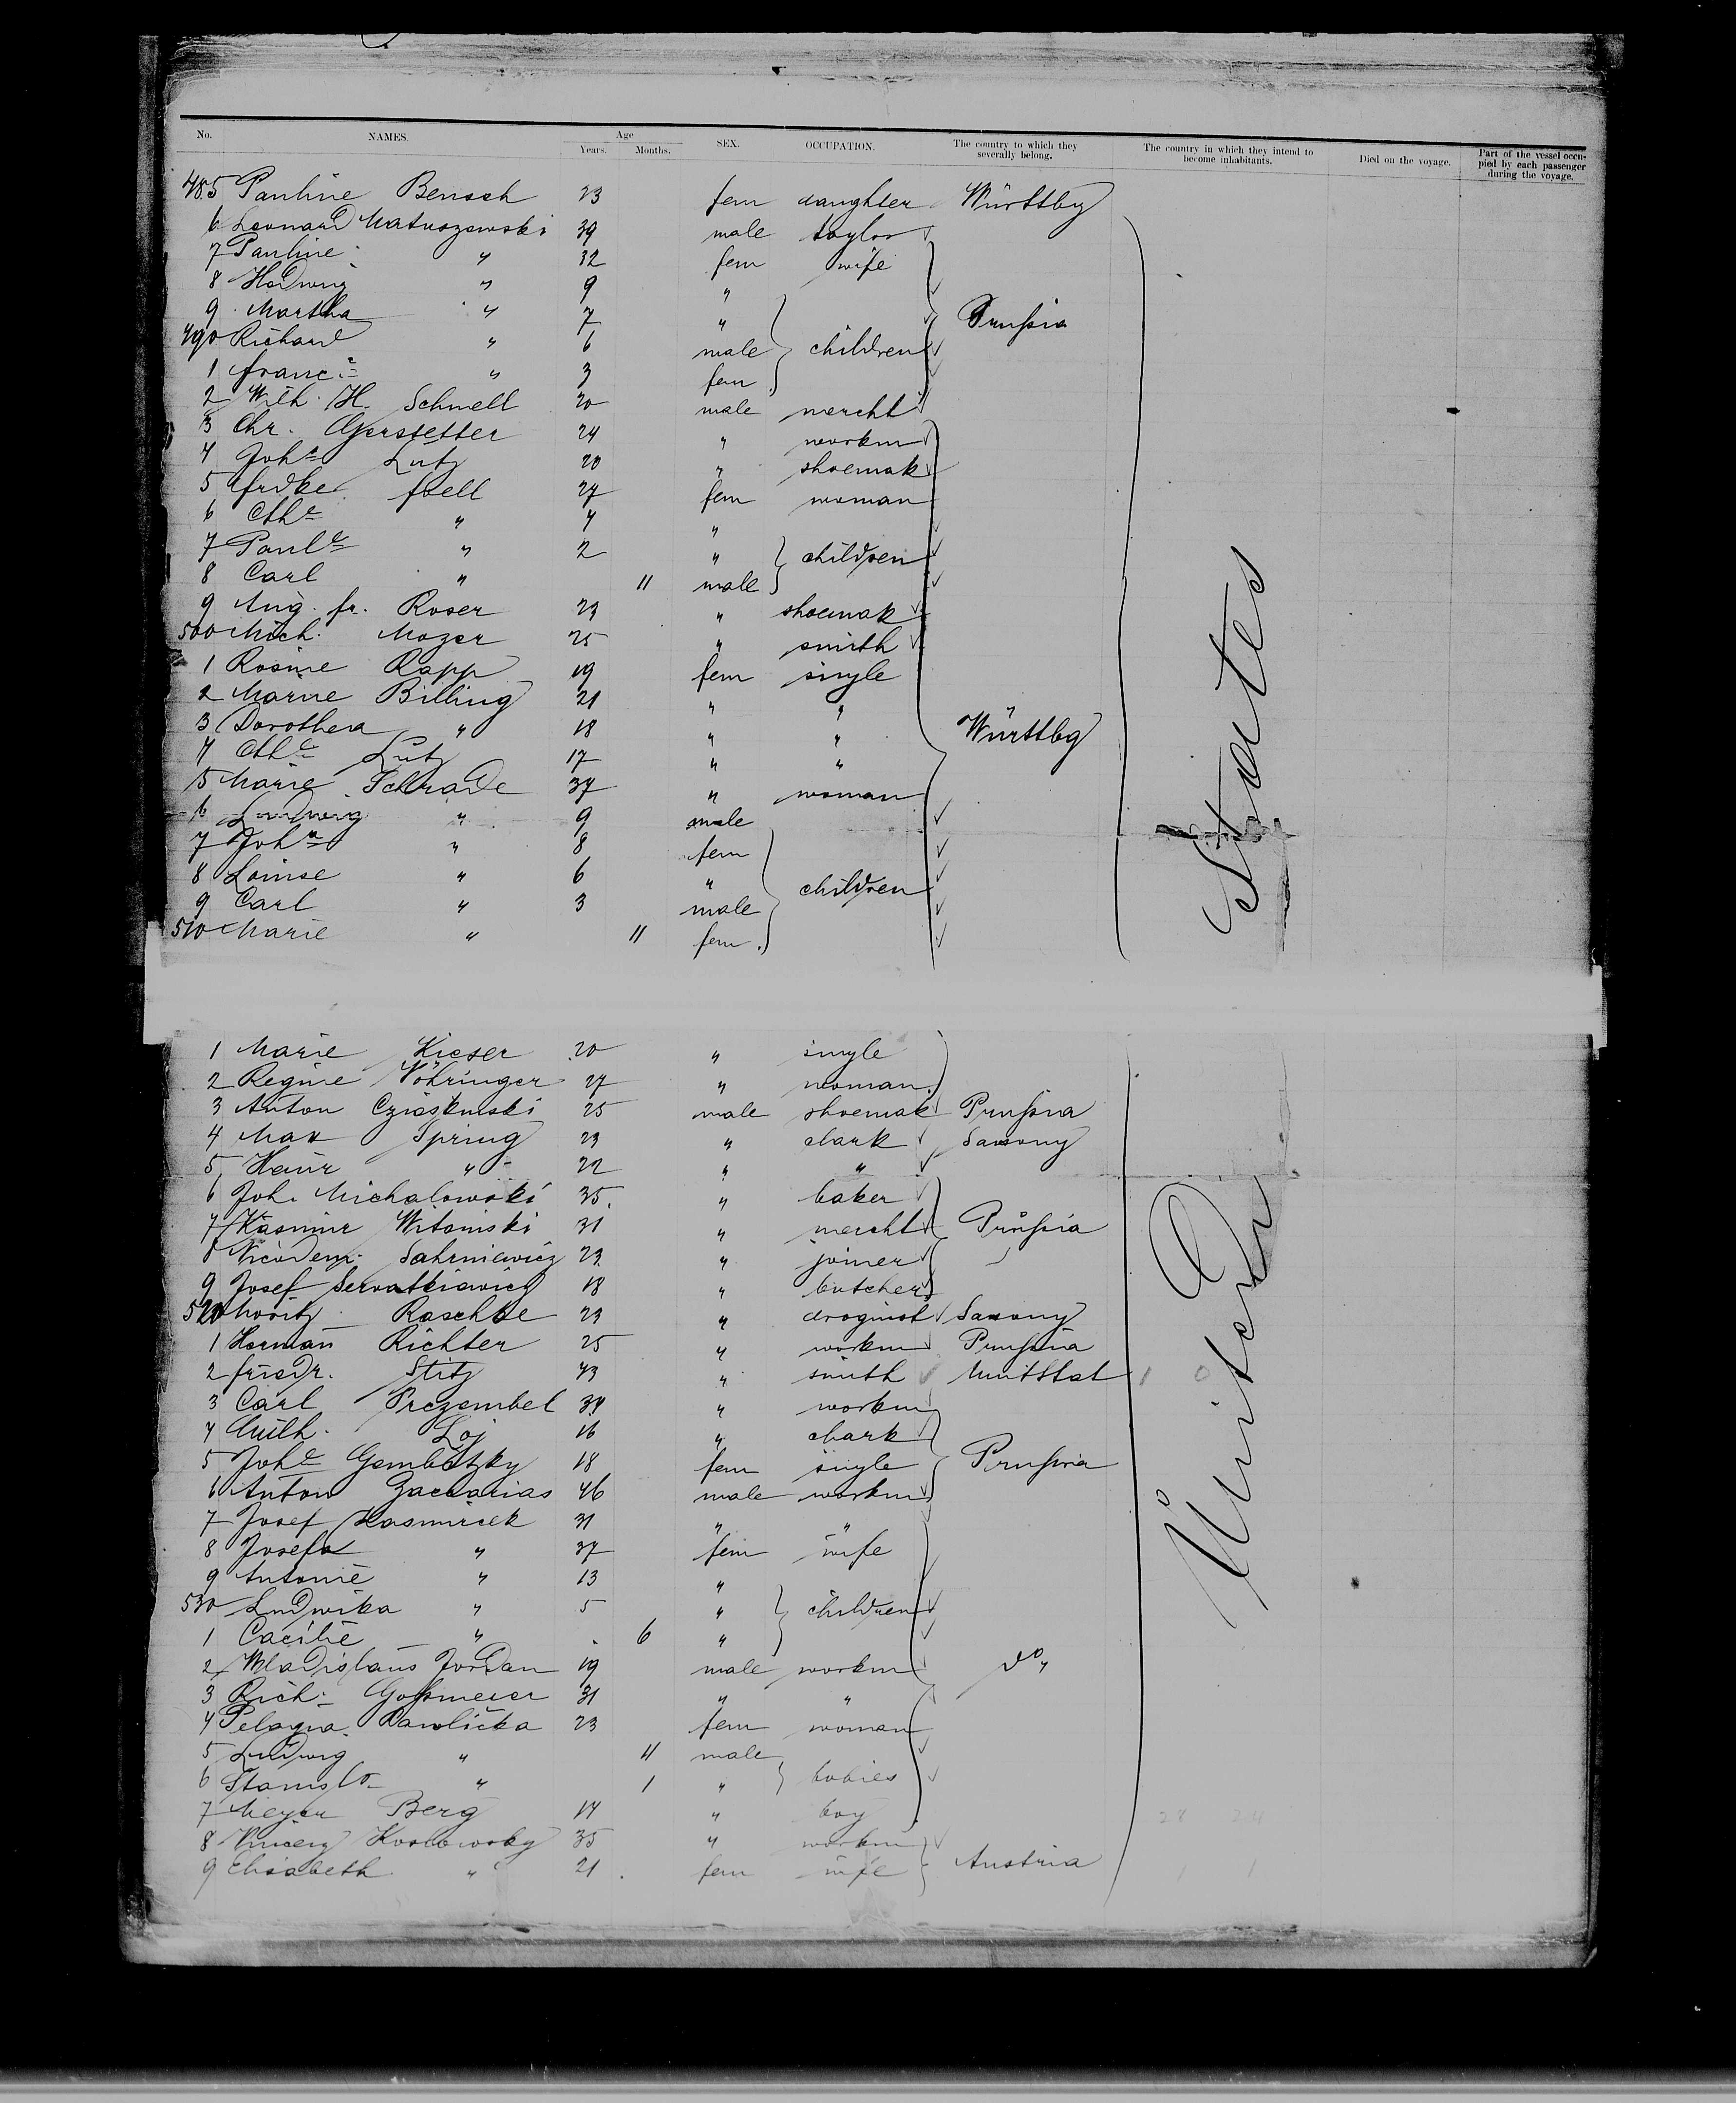 No. NAMES. Age Years. Months. SEX. OCCUPATION. The country to which they severally belong. The country in which they intend to become inhabitants. Died on the voyage. Part of the vessel occupied by each passenger during the voyage.
485 Pauline Bensch 23 fem daughter Württbg
6 Leonard Matuszewski 39 male taylor
7 Pauline " 32 fem wife
8 Hedwig " 9 "
9 Martha " 7 " Prussia
490 Richard " 6 male children
1 Franc.ª " 3 fem
2 Wilh. H. Schnell 20 male mercht
3 Chr. Gerstetter 24 " workm
4 Johs Lutz 20 " shoemak
5 Frdke Foell 27 fem woman
6 Cthe " 4 "
7 Paule " 2 " children
8 Carl " 11 male
9 Aug. Fr. Roser 23 " shoemak
500 Mich. Mozer 25 " smith
1 Rosine Rapp 19 fem single
2 Marie Billing 21 " "
3 Dorothea " 18 " " Württbg
4 Cthe Lutz 17 " "
5 Marie Schrade 37 " woman
6 Ludwig " 9 male
7 Joha " 8 fem
8 Louise " 6 " children
9 Carl " 3 male
510 Marie " 11 fem
1 Marie Kieser 20 " single
2 Regine Vöhringer 27 " woman
3 Anton 25 male shoemak Prussia
4 Max Spring 23 " clark Saxony
5 Heinr " 22 " "
6 Joh. Michalowski 35 " baker
7 Kasimir Witomski 31 " mercht Prussia
8 Nicodem. 23 " joiner
9 Josef Servatkiewicz 18 " butcher
520 Moritz Raschke 23 " droguist Saxony
1 Herman Richter 25 " workm Prussia
2 Friedr. Stitz 43 " smith UnitStat 1 0
3 Carl Przembel 34 " workm
4 Wilh. Loj 16 " clark
5 Johe Gembotzky 18 fem single Prussia
6 Anton Zacharias 46 male workm
7 Josef Kasmirzek 31 " "
8 Josefa " 37 fem wife
9 Antonie " 13 "
530 Ludwika " 5 " children
1 Cacilie " 6 "
2 Wladislaus Jordan 19 male workm do
3 Rich. Gossmeier 31 " "
4 Pelagia Pawlicka 23 fem woman
5 Ludwig " 11 male
6 Stanislo " 1 " babies
7 Meyer Berg 14 " boy
8 Vincenz Koslowsky 35 " workm
9 Elisabeth " 21 fem wife Austria
United States
28 24
1 1